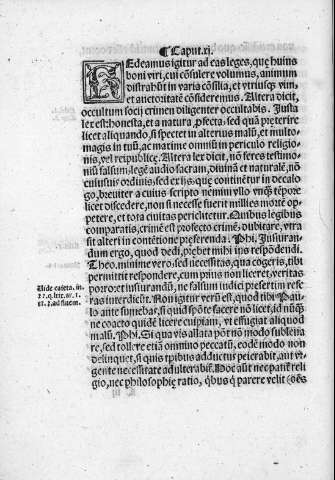 ¶ Caput.xi.
Edeamus igitur ad eas leges, que huius
boni viri, cui cōsulere volumus, animum
distrahūt in varia cōsilia, et vtriusq; vim
et auctoritatē cōsideremus. Altera dicit,
occultum socij crimen diligenter occultabis. Justa
lex est: honesta, et a natura ꝓfecta; sed quā preterire
licet aliquando, si spectet in alterius malū, et multo
magis in tuū, ac maxime omniū in periculo religio
nis, vel reipublice. Altera lex dicit, nō feres testimo
niū falsum: legē audio sacram, diuinā et naturalē, nō
cuiusuis ordinis, sed ex ijs, que continētur in decalo
go, breuiter a cuius scripto nemini vllo vnq̄ tēpore
licet discedere, non si necesse fuerit millies morte op
petere, et tota ciuitas periclitetur. Quibus legibus
comparatis, crimē est profecto crimē, dubitare, vtra
sit alteri in cōtētione preferenda. Phi. Jusiuran
dum ergo, quod dedi, prebet mihi ius respōdendi.
Theo. minime vero sed necessitas, qua cogeris, tibi
permittit respondere, cum prius non liceret, veritas
porro et iusiurandū, ne falsum iudici presertim re
feras interdicūt. Non igitur verū est, quod tibi Pau
lo ante sumebas, si quid spōte facere nō licet, id nūq̄
ne coacto quidē licere cuipiam, vt effugiat aliquod
malū. Phi. Si qua vis allata pōt nō modo subleua
re, sed tollere etiā omnino peccatū, eodē modo non
delinquet, si quis tpibus adductus peierabit, aut vr
gente necessitate adulterabit. Hoc aūt nec patit̄ reli
gio, nec philosophie ratio, q̄bus q̄ parere velit (oēs
Uide caieta. in.